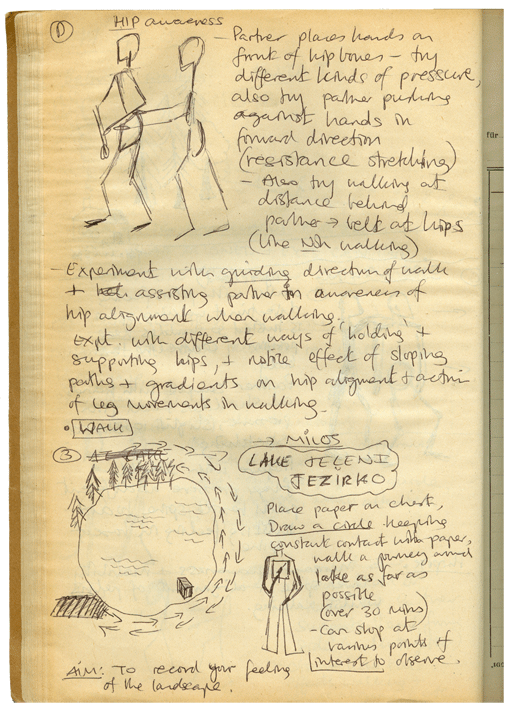 1
HIP awareness
- Partner places hands on
front of hip bones - try
different kinds of pressure,
also try partner pushing
against hands in
forward direction
(resistance stretching)
- Also try walking at
distance behind
partner → belt at hips
(like Noh walking)
- Experiment with guiding direction of walk
+ assisting partner in awareness of
hip alignment when walking.
Expt. with different ways of 'holding' +
supporting hips, + notice effect of sloping
paths + gradients on hip alignment + action
of leg movements in walking.
• WALK
3
→ MILOS
LAKE JELENI
JEZIRKO
Place paper on chest,
Draw a circle keeping
constant contact with paper,
walk a journey around
lake as far as
possible
(over 30 mins)
- Can stop at
various points of
interest to observe.
AIM: To record your feeling
of the landscape.
für